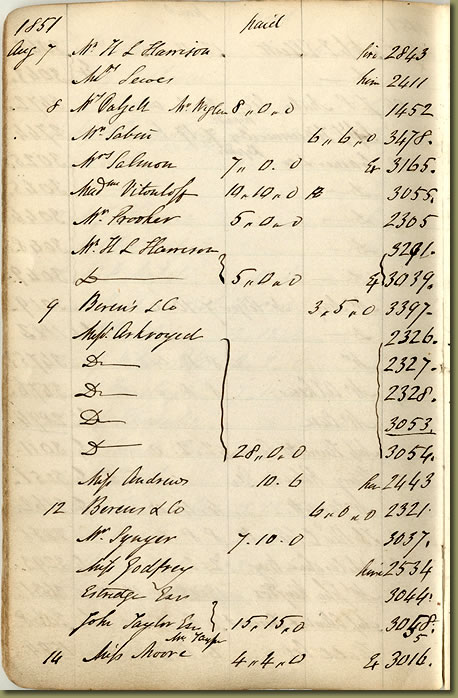 1851 paid
Aug 7 Mr H L Harrison hire 2843
Mrs Lewes hire 2411
8 8,,0,,0 1452
Mr Sabin 6,,6,,0 3478.
Mrs Salmon 7,,0.0 Ex 3165.
Madme 10,,10,,0 3055.
Mr Prooker 5,,0,,0 2305
Mr H L Harrison 3291.
D 5,,0,,0 Ex 3039.
9 Beren's & Co 3,,5,,0 3397.
Miss 2326.
D 2327.
D 2328.
D 3053.
D 28,,0,,0 3054.
Miss Andrews 10.6 hire 2443
12 Berens & Co 6,,0,,0 2321.
Mr 7.10.0 3037.
Miss Godfrey hire 2534
Estridge Esq 3044.
John Taylor Esq 15,,15,,0
Mr Taylor
14 Miss Moore 4,,4,,0 Ex 3016.